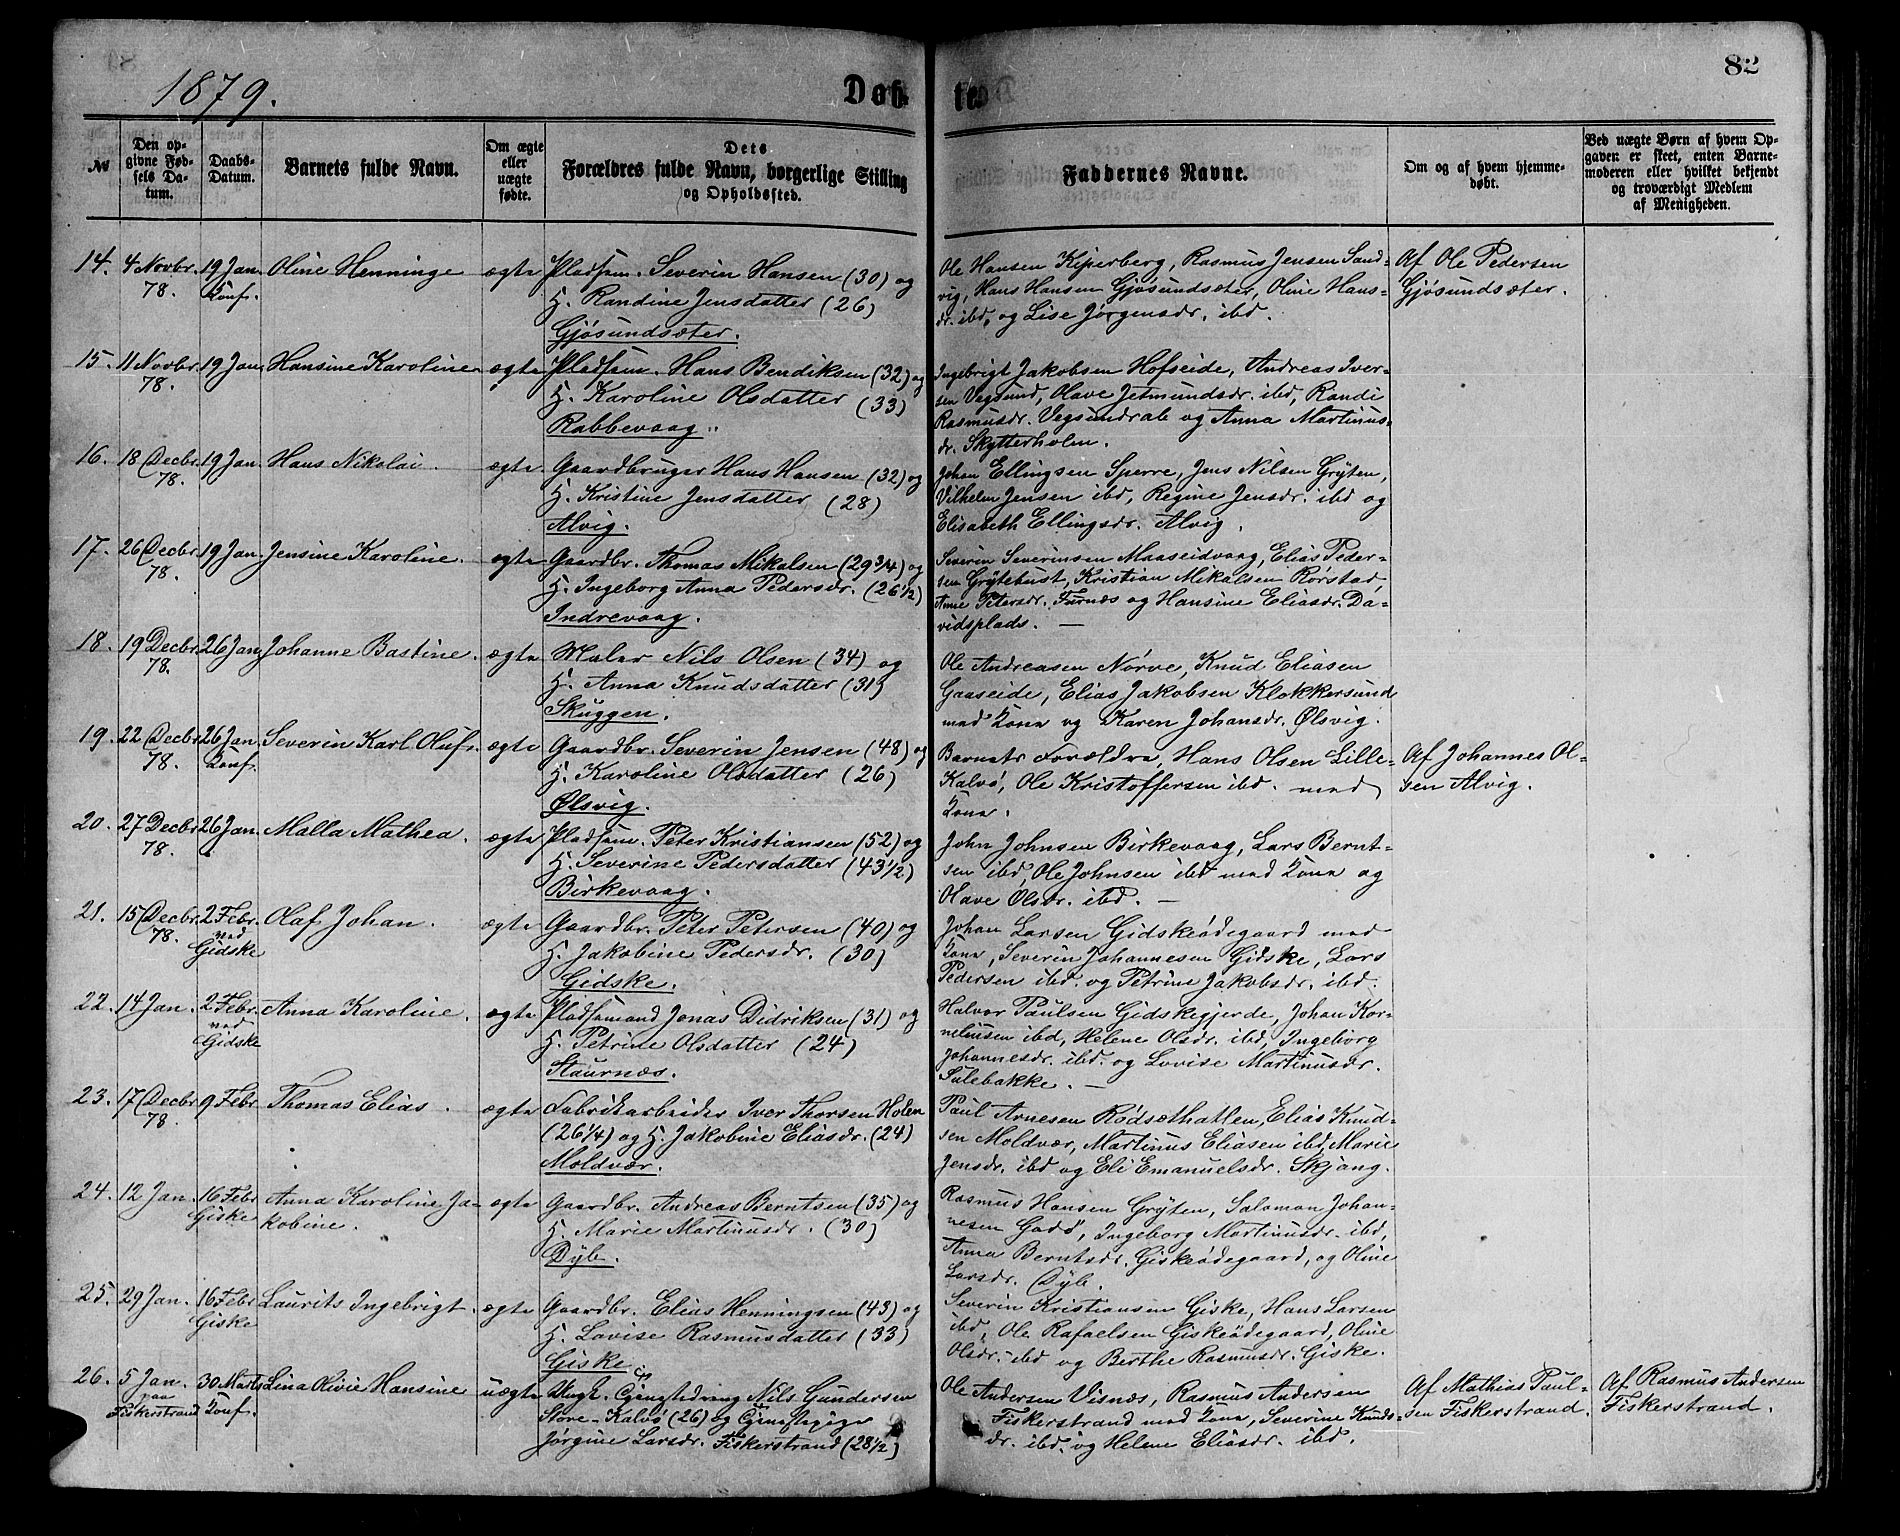 1879.
Døb-
te.
82
№
Den op-
givne Fød-
sels Da-
tum.
Daabs-
Datum.
Barnets fulde Navn.
Om ægte
eller
uægte
fødte.
Dets
Forældres fulde Navn, borgerlige Stilling
og Opholdssted.
Faddernes Navne.
Om og af hvem hjemme-
døbt.
Ved uægte Børn af hvem Op-
gaven er skeet, enten Barne-
moderen eller hvilket bekjendt
og troværdigt Medlem
af Menigheden.
14. 4 Novbr. 19 Jan. Oline Henninge ægte Pladsm. Severin Hansen (30) og
78. Konf. H. Randine Jensdatter (26)
Gjøsundsæter.
Ole Hansen Kiperberg, Rasmus Jensen Sand-
vig, Hans Hansen Gjøsundsæter, Oline Hans-
dr. ibd, og Lise Jørgensdr. ibd.
Af Ole Pedersen
Gjøsundsæter.
15. 11 Novbr. 19 Jan. Hansine Karoline ægte Pladsm. Hans Bendiksen (32) og
78. H. Karoline Olsdatter (33)
Rabbevaag.
Ingebrigt Jakobsen Hofseide, Andreas Iver-
sen Vegsund, Olave Jetmundsdr. ibd, Randi
Rasmusdr. Vegsundrab og Anna Martinus-
dr. Skytterholm.
16. 18 Decbr. 19 Jan. Hans Nikolai. ægte Gaardbruger Hans Hansen (32) og
78. H. Kristine Jensdatter (28)
Alvig.
Johan Ellingsen Sperre, Jens Nilsen Gryten,
Vilhelm Jensen ibd, Regine Jensdr. ibd og
Elisabeth Ellingsdr. Alvig.
17. 26 Decbr. 19 Jan. Jensine Karoline. ægte Gaardbr. Thomas Mikalsen (29 3/4) og
78. H. Ingeborg Anna Pedersdr. (26 1/2)
Indrevaag.
Severin Severinsen Maaseidvaag, Elias Peder-
sen Grytehust, Kristian Mikalsen Rørstad
Anne Petersdr. Furnæs og Hansine Eliasdr. Da-
vidsplads. —
18. 19 Decbr. 26 Jan. Johanne Bastine. ægte Maler Nils Olsen (34) og
78. H. Anna Knudsdatter (31)
Skuggen.
Ole Andreasen Nørve, Knud Eliasen
Gaaseide, Elias Jakobsen Klokkersund
med Kone og Karen Johansdr. Ølsvig.
19. 22 Decbr. 26 Jan. Severin Karl Oluf. ægte Gaardbr. Severin Jensen (48) og
78. Konf. H. Karoline Olsdatter (26)
Ølsvig.
Barnets Forældre, Hans Olsen Lille-
Kalvø, Ole Kristoffersen ibd. med
Kone.
Af Johannes Ol-
sen Alvig.
20. 27 Decbr. 26 Jan. Malla Mathea. ægte Pladsm. Peter Kristiansen (52) og
78. H. Severine Pedersdatter (43 1/2)
Birkevaag.
John Johnsen Birkevaag, Lars Bernt-
sen ibd, Ole Johnsen ibd med Kone og
Olave Olsdr. ibd. —
21. 15 Decbr. 2 Febr. Olaf Johan. ægte Gaardbr. Peter Petersen (40) og
78. ved Gidske H. Jakobine Pedersdr. (30)
Gidske.
Johan Larsen Gidskeødegaard med
Kone, Severin Johannesen Gidske, Lars
Pedersen ibd. og Petrine Jakobsdr. ibd.
22. 14 Jan. 2 Febr. Anna Karoline. ægte Pladsmand Jonas Didriksen (31) og
ved Gidske H. Petrine Olsdatter (24)
Staurnæs.
Halvor Paulsen Gidskegjerde, Johan Kor-
neliusen ibd, Helene Olsdr. ibd, Ingeborg
Johannesdr. ibd. og Lovise Martinusdr.
Sulebakke. —
23. 17 Decbr. 9 Febr. Thomas Elias. ægte Fabrikarbeider Iver Thorsen Holen
78. (26 1/4) og H. Jakobine Eliasdr. (24)
Moldvær.
Paul Arnesen Rødsethatlen, Elias Knud-
sen Moldvær, Martinus Eliasen ibd, Marie
Jensdr. ibd og Eli Emanuelsdr. Skjong.
24. 12 Jan. 16 Febr. Anna Karoline Ja- ægte Gaardbr. Andreas Berntsen (35) og
Giske kobine. H. Marie Martinusdr. (30)
Dyb.
Rasmus Hansen Gryten, Salomon Johan-
nesen Godø, Ingeborg Martinusdr. ibd,
Anna Berntsdr. Giskeødegaard, og Oline
Larsdr. Dyb.
25. 29 Jan. 16 Febr. Laurits Ingebrigt. ægte Gaardbr. Elias Henningsen (43) og
Giske H. Lovise Rasmusdatter (33)
Giske
Severin Kristiansen Giske, Hans Larsen
ibd, Ole Rafaelsen Giskeødegaard, Oline
Olsdr. ibd og Berthe Rasmusdr. Giske.
26. 5 Jan. 30 Marts Lina Olivie Hansine uægte Ungk. Nils Gundersen
paa Fiskerstrand Konf. Store-Kalvø (26) og
Jørgine Larsdr. Fiskerstrand (28 1/2)
Ole Andersen Visnæs, Rasmus Andersen
Fiskerstrand med Kone, Severine Knuds-
dr. ibd. og Helene Eliasdr. ibd.
Af Mathias Paul-
sen Fiskerstrand.
Af Rasmus Andersen
Fiskerstrand.